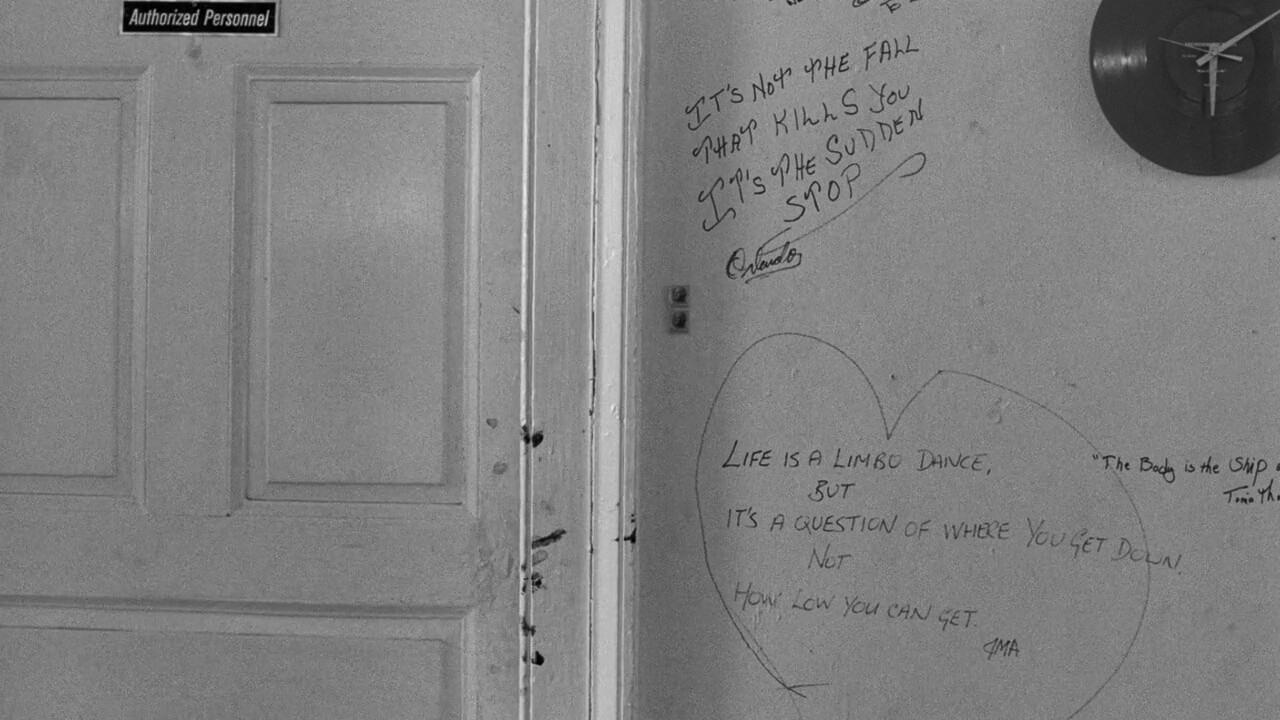 Authorized Personnel
IT'S NOT THE FALL
THAT KILLS YOU
IT'S THE SUDDEN
STOP
Orlando
LIFE IS A LIMBO DANCE,
BUT
IT'S A QUESTION OF WHERE YOU GET DOWN.
NOT
HOW LOW YOU CAN GET.
JMA
"The Body is the Ship